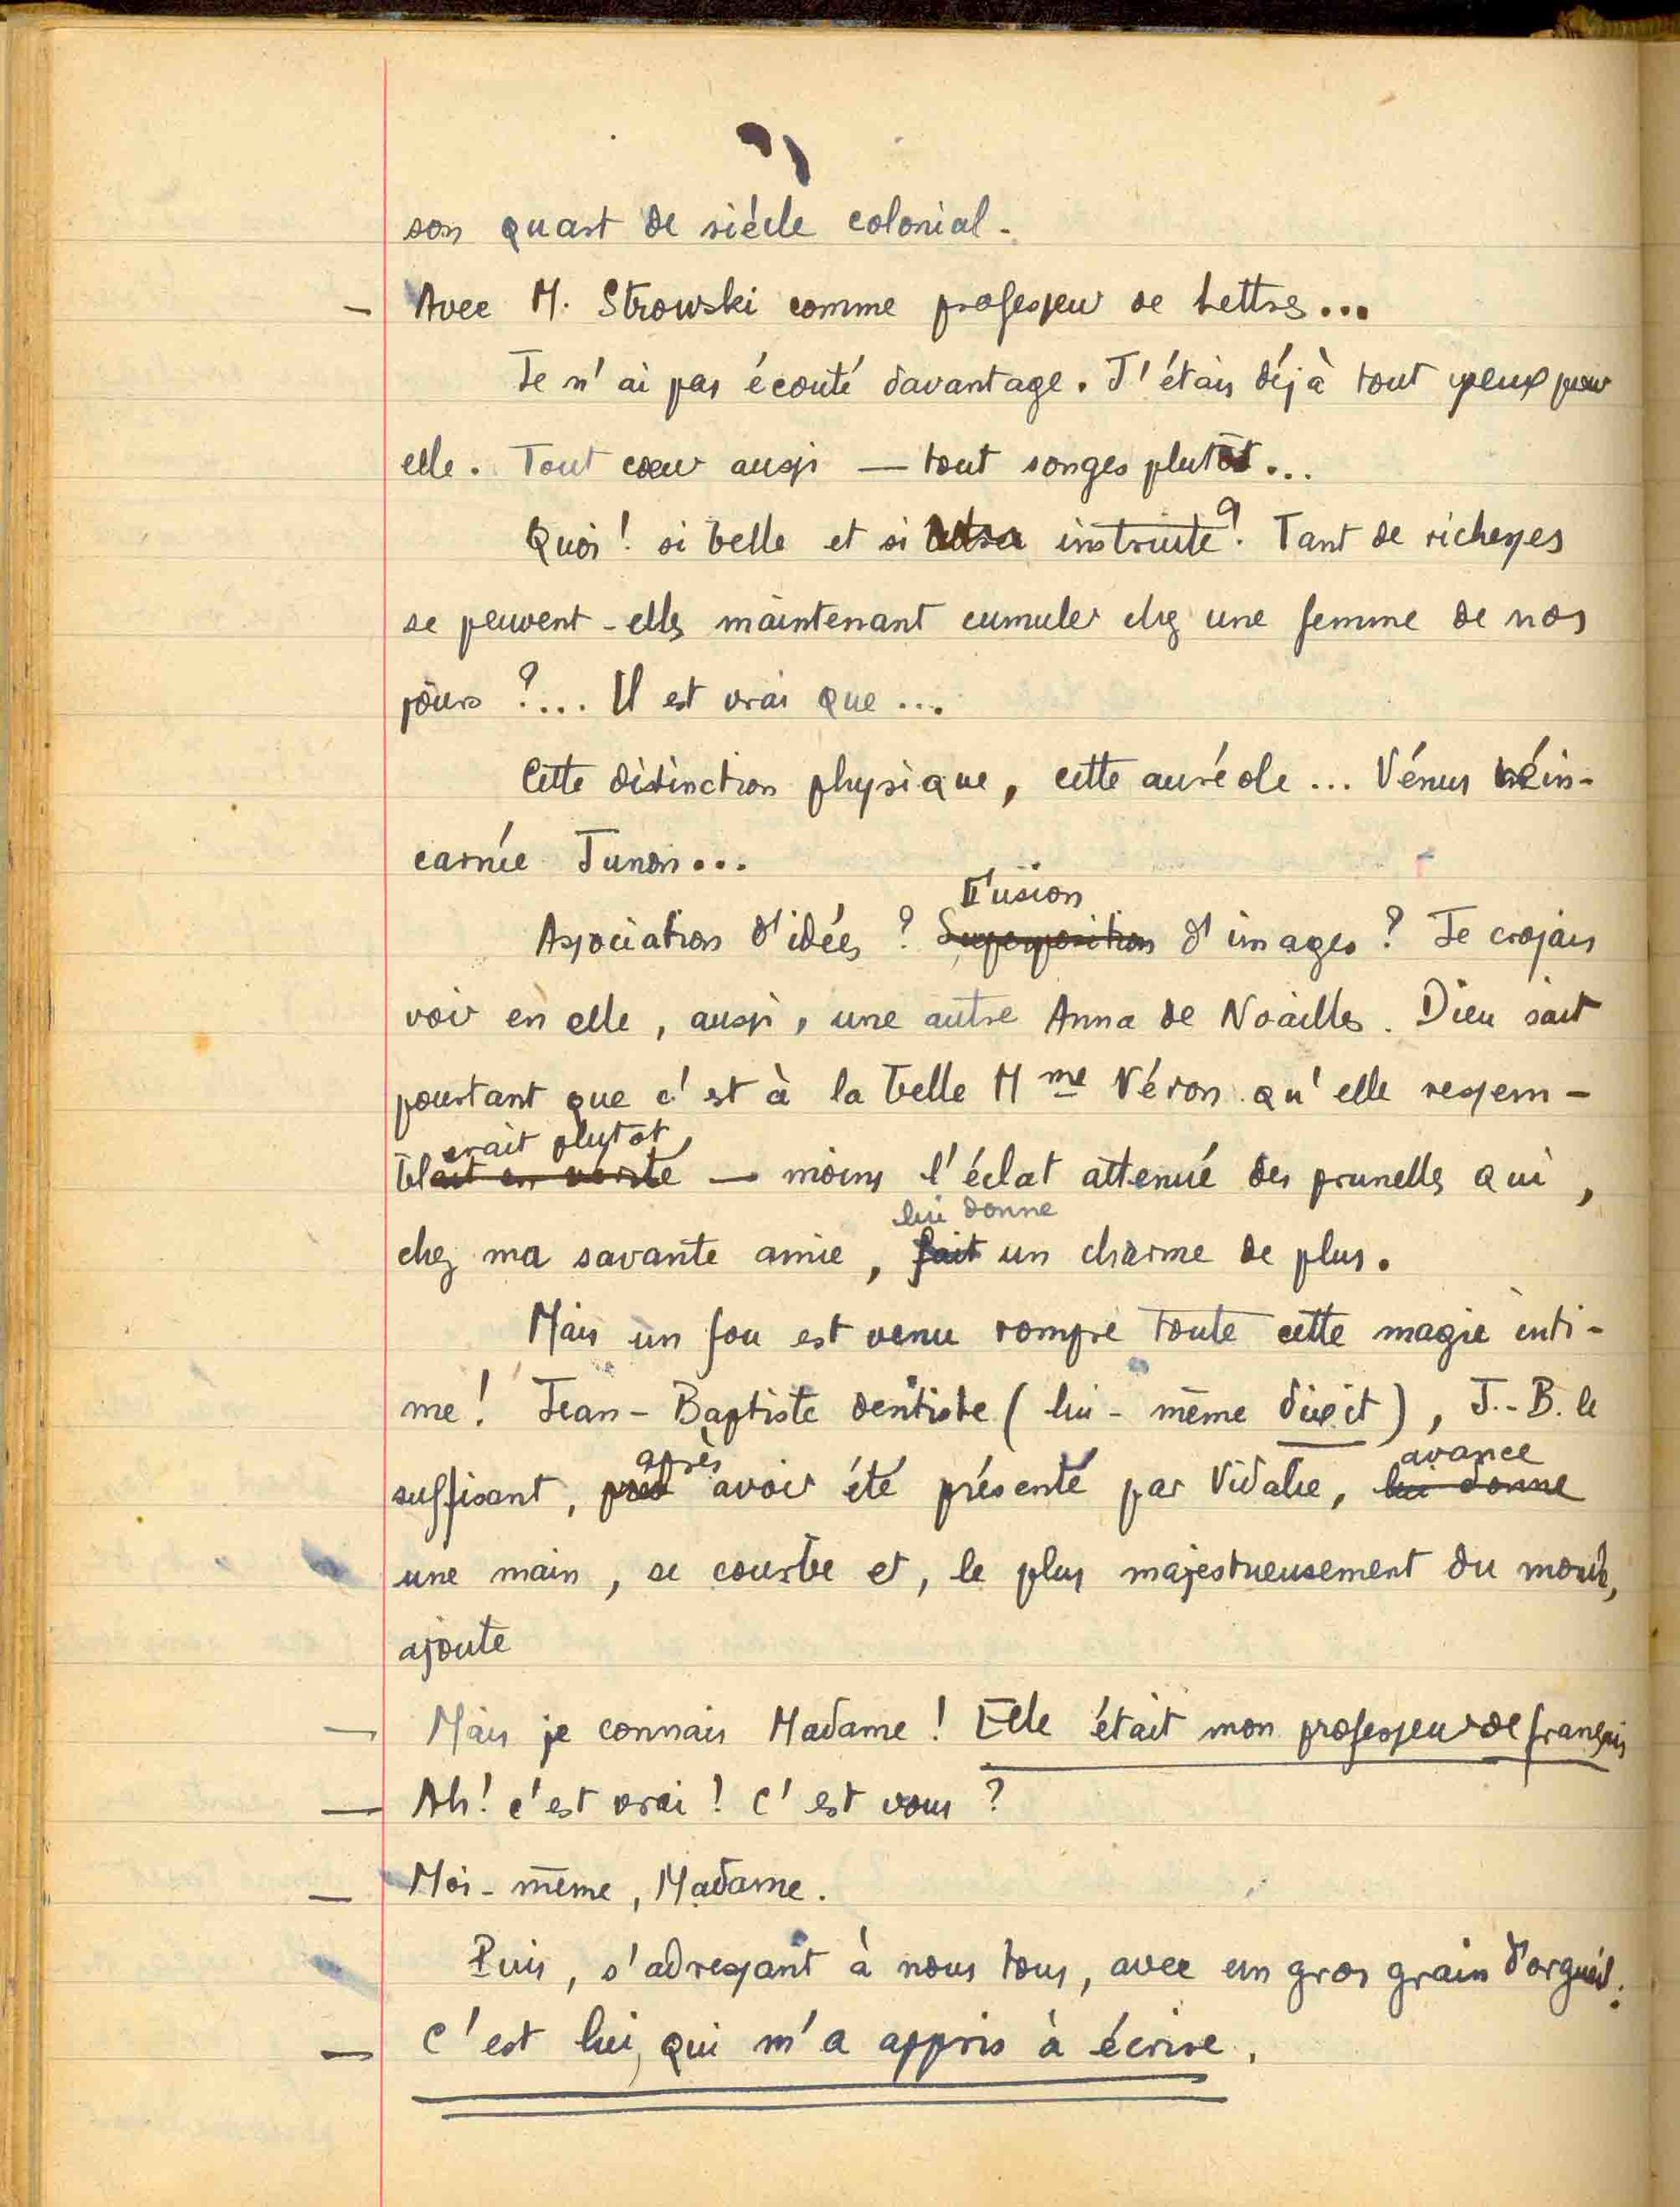 son quart de siècle colonial.
— Avec M. Strowski comme professeur de Lettres...
Je n'ai pas écouté davantage. J'étais déjà tout yeux pour
elle. Tout cœur aussi — tout songes plutôt...
Quoi! si belle et si instruite? Tant de richesses
se peuvent-elles maintenant cumuler chez une femme de nos
jours?... Il est vrai que...
Cette distinction physique, cette auréole... Vénus réin-
carnée Junon...
Fusion
Association d'idées? Superposition d'images? Je croyais
voir en elle, aussi, une autre Anna de Noailles. Dieu sait
pourtant que c'est à la belle Mme Véron qu'elle ressem-
erait plutôt,
blait en vérité — moins l'éclat attenué des prunelles qui,
lui donne
chez ma savante amie, fait un charme de plus.
Mais un fou est venu rompre toute cette magie inti-
me! Jean-Baptiste dentiste (lui-même dixit), J.-B. le
après avance
suffisant, avoir été présenté par Vidalie, lui donne
une main, se courbe et, le plus majestueusement du monde,
ajoute
— Mais je connais Madame! Elle était mon professeur de français
— Ah! c'est vrai! C'est vous?
— Moi-même, Madame.
Puis, s'adressant à nous tous, avec un gros grain d'orgueil:
— C'est lui, qui m'a appris à écrire.